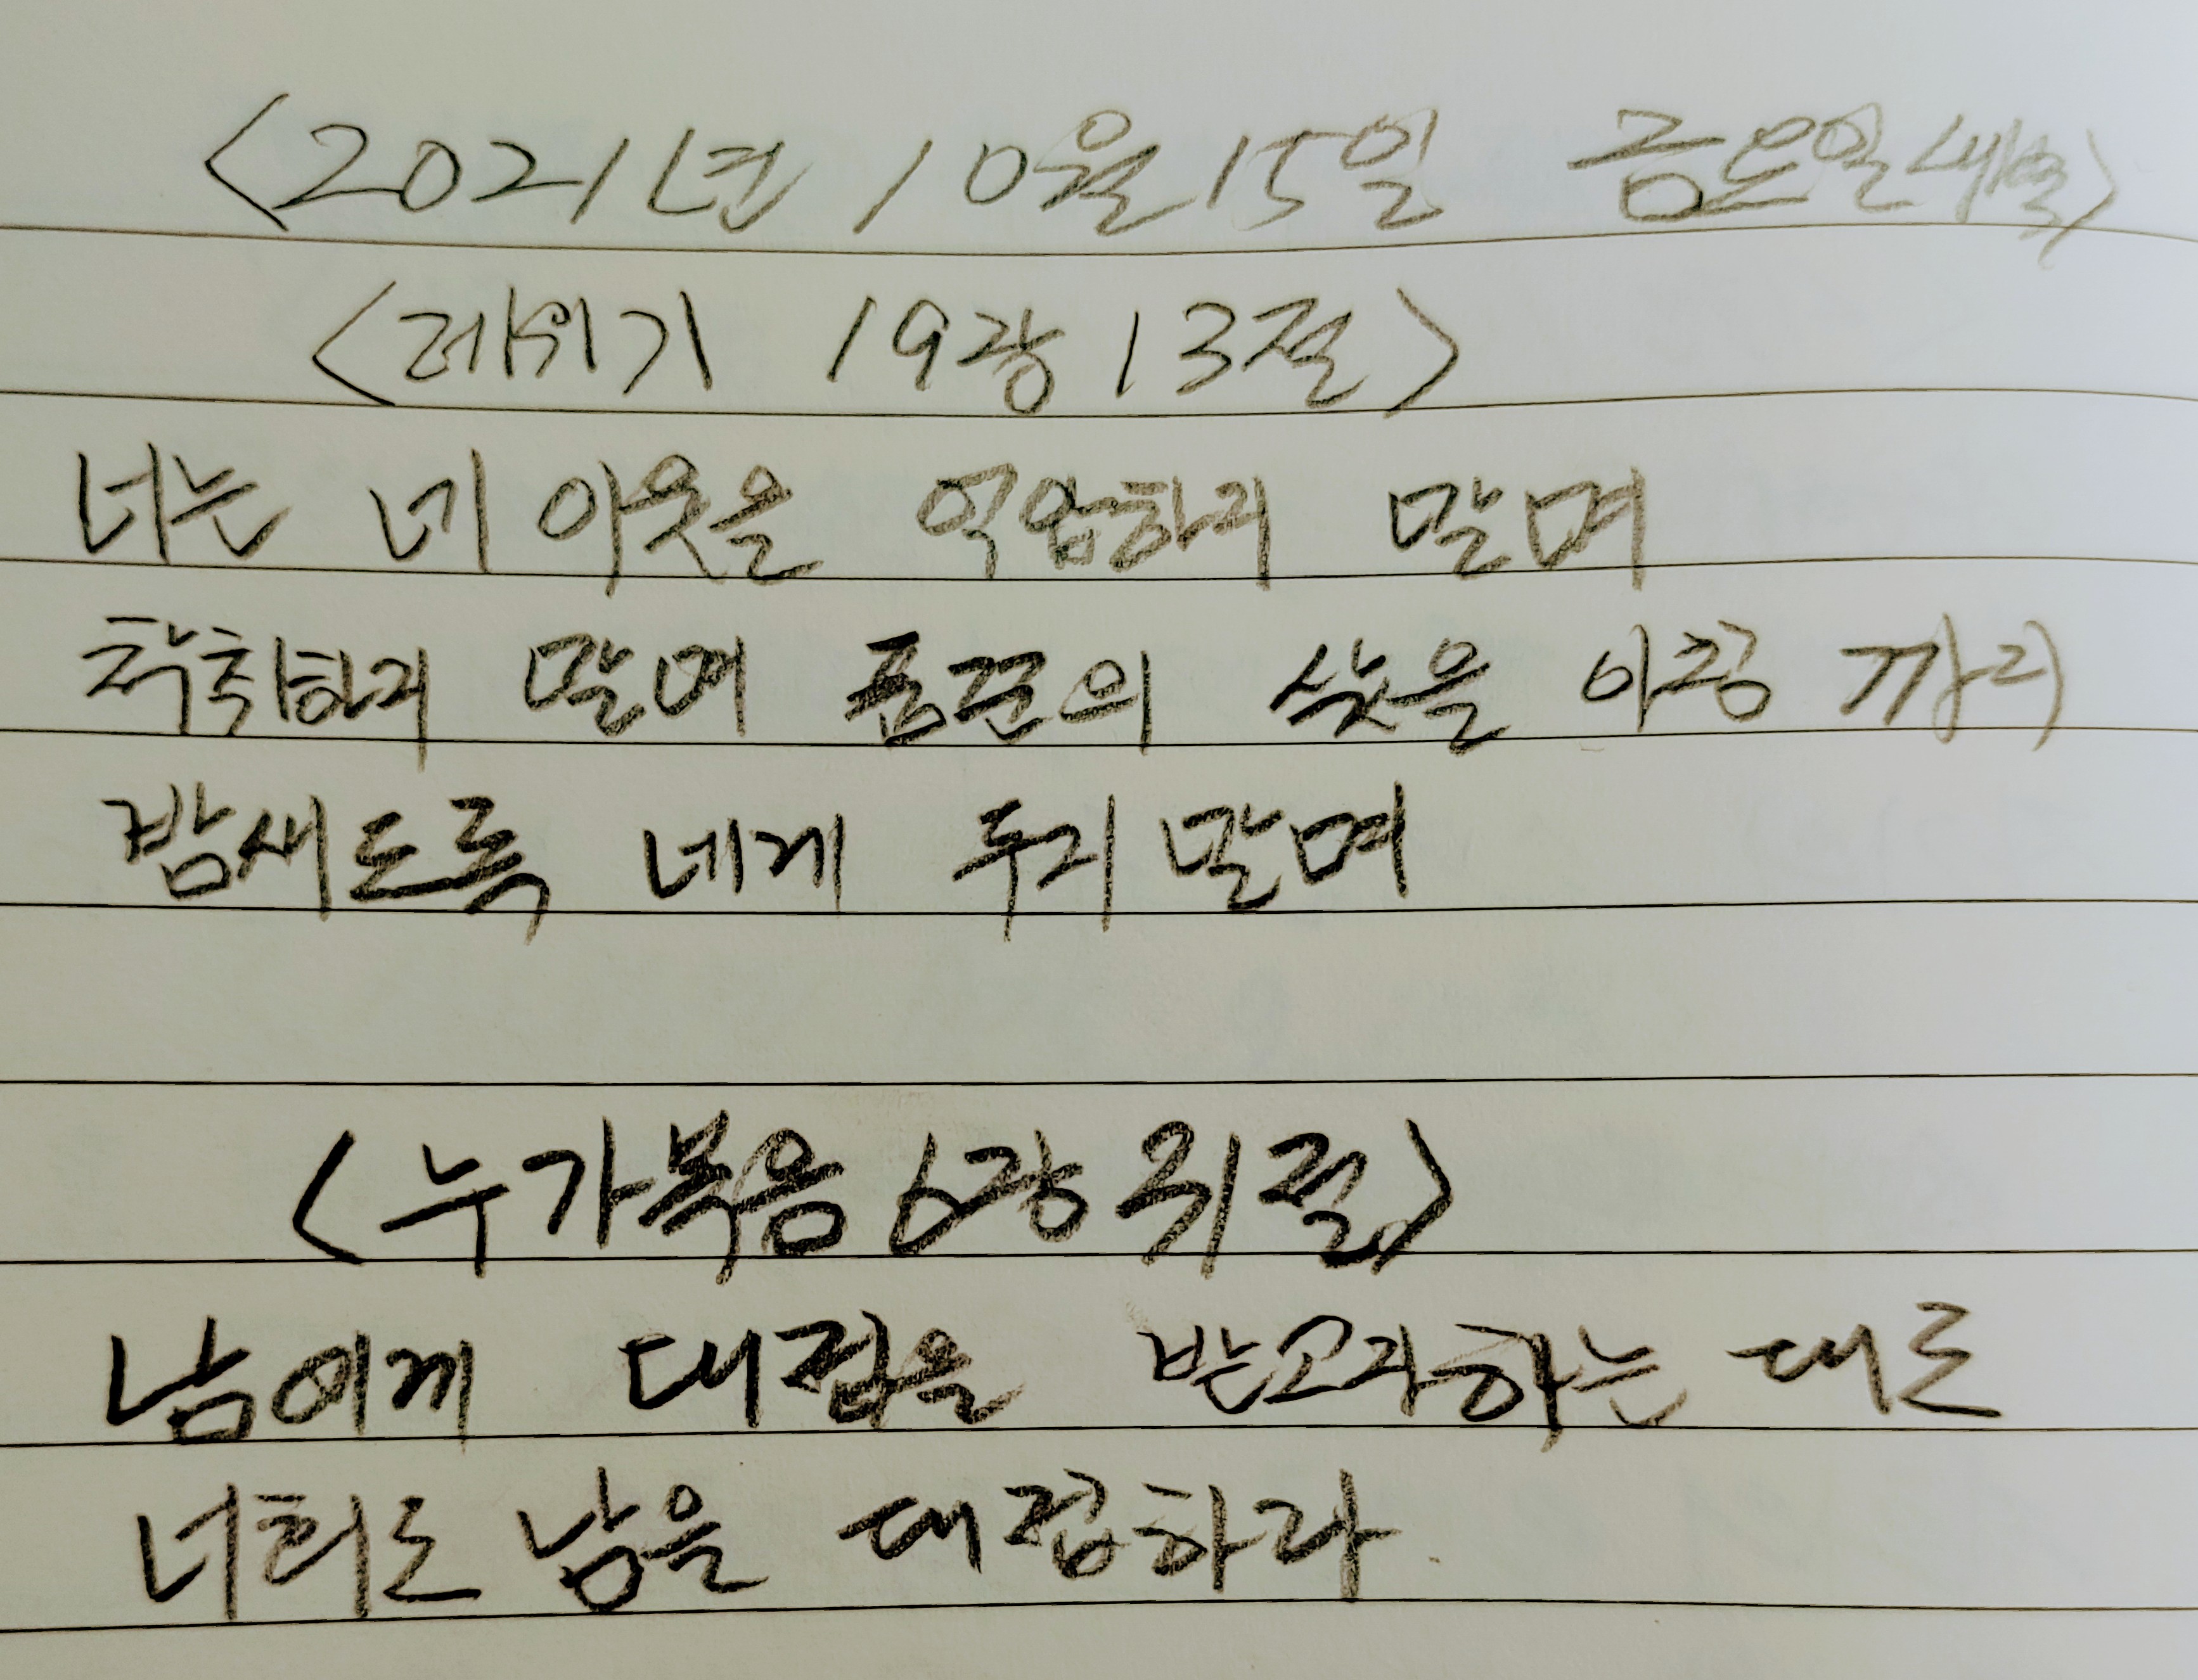 <2021년 10월 15일 금요일새벽>
<레위기 19장 13절>
너는 네 이웃을 억압하지 말며
착취하지 말며 품꾼의 삯을 아침 까지
밤새도록 네게 두지 말며
<누가복음 6장 31절>
남에게 대접을 받고자하는 대로
너희도 남을 대접하라.